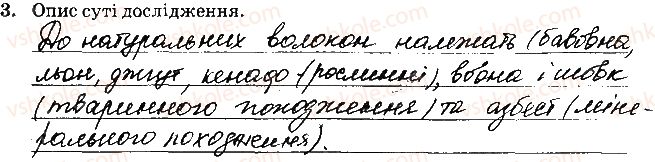 3. Опис суті дослідження.
До натуральних волокон належать (бавовна,
льон, джут, кенаф (рослинні), вовна і шовк
(тваринного походження) та азбест (міне-
рального походження).